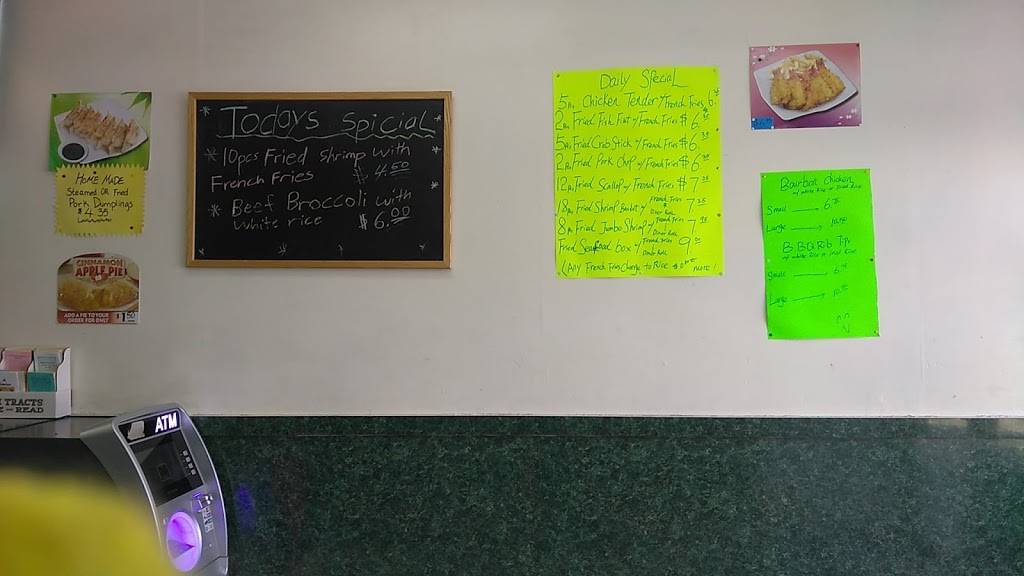 Todoys Spicial
10pcs Fried Shrimp with
French Fries $4.50
Beef Broccoli with
white rice $6.00
HOME MADE
Steamed OR Fried
Pork Dumplings
$4.35
CINNAMON
APPLE PIE!
ADD A PIE TO YOUR
ORDER FOR ONLY
$1.50
TRACTS
READ
ATM
Daily Special
Chicken Tender w/ French Fries 6.
Fried Fish w/ French Fries $6.
Fried Crab Stick w/ French Fries $6.
Fried Pork Chop w/ French Fries $6
12 Fried Scallop w/ French Fries $7
Fried Shrimp w/ French Fries 7
Dinner Roll
Fried Jumbo Shrimp w/ French Fries 7
Dinner Roll
Fried Seafood box w/ French Fries 9
Dinner Roll
(Any French Fries Change to Rice
Bourbon Chicken
w/ white Rice or Fried Rice
Small 6.
Large 10.
B.B.Q Rib
w/ white Rice or Fried Rice
Small 6.
Large 10.